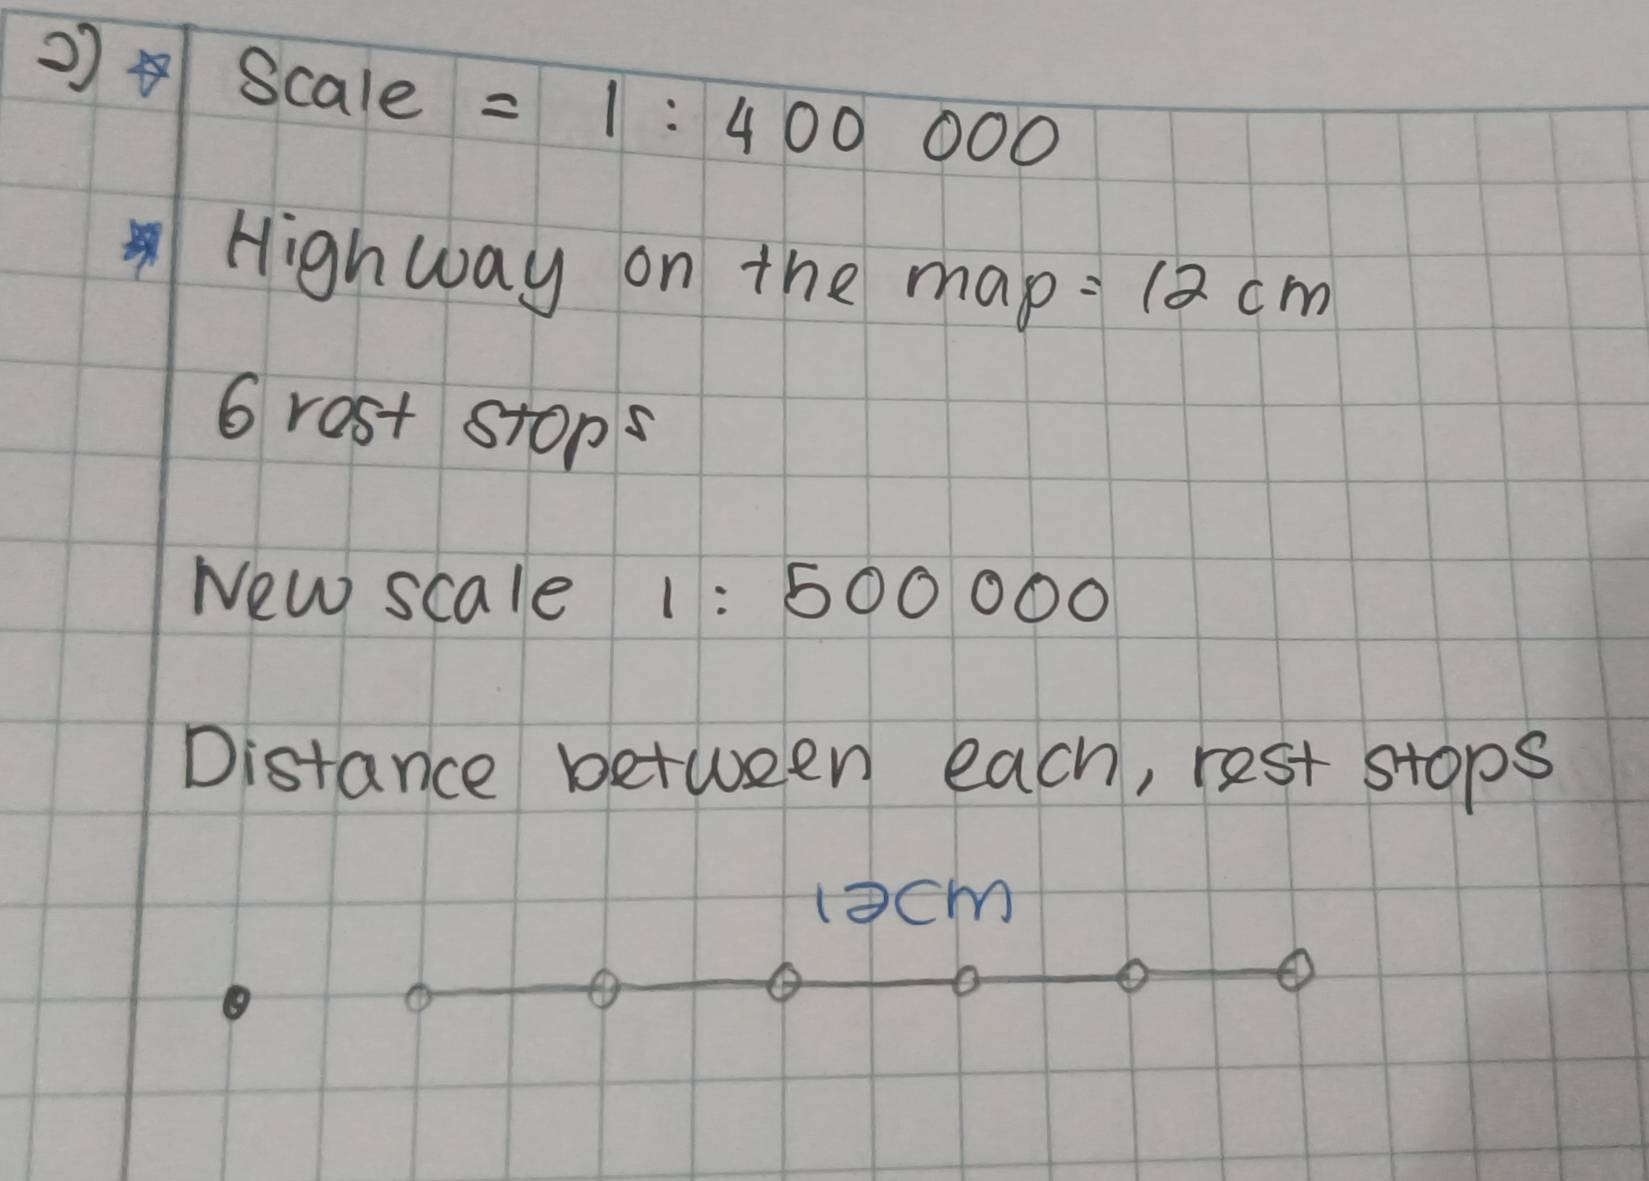 2) Scale = 1 : 400 000
Highway on the map = 12 cm
6 rest stops
New scale 1 : 500 000
Distance between each, rest stops
12cm